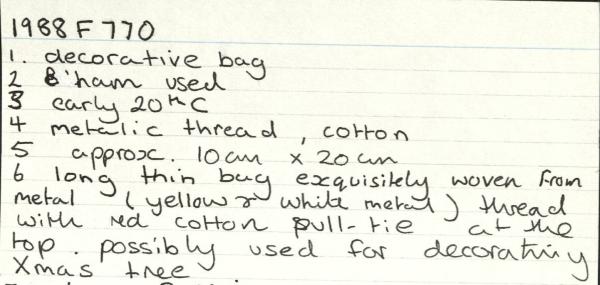 1988 F 770
1. decorative bag
2 B'ham used
3 early 20th C
4 metalic thread, cotton
5 approx. 10 cm x 20 cm
6 long thin bag exquisitely woven from
metal (yellow & white metal) thread
with red cotton pull-tie at the
top. possibly used for decorating
Xmas tree